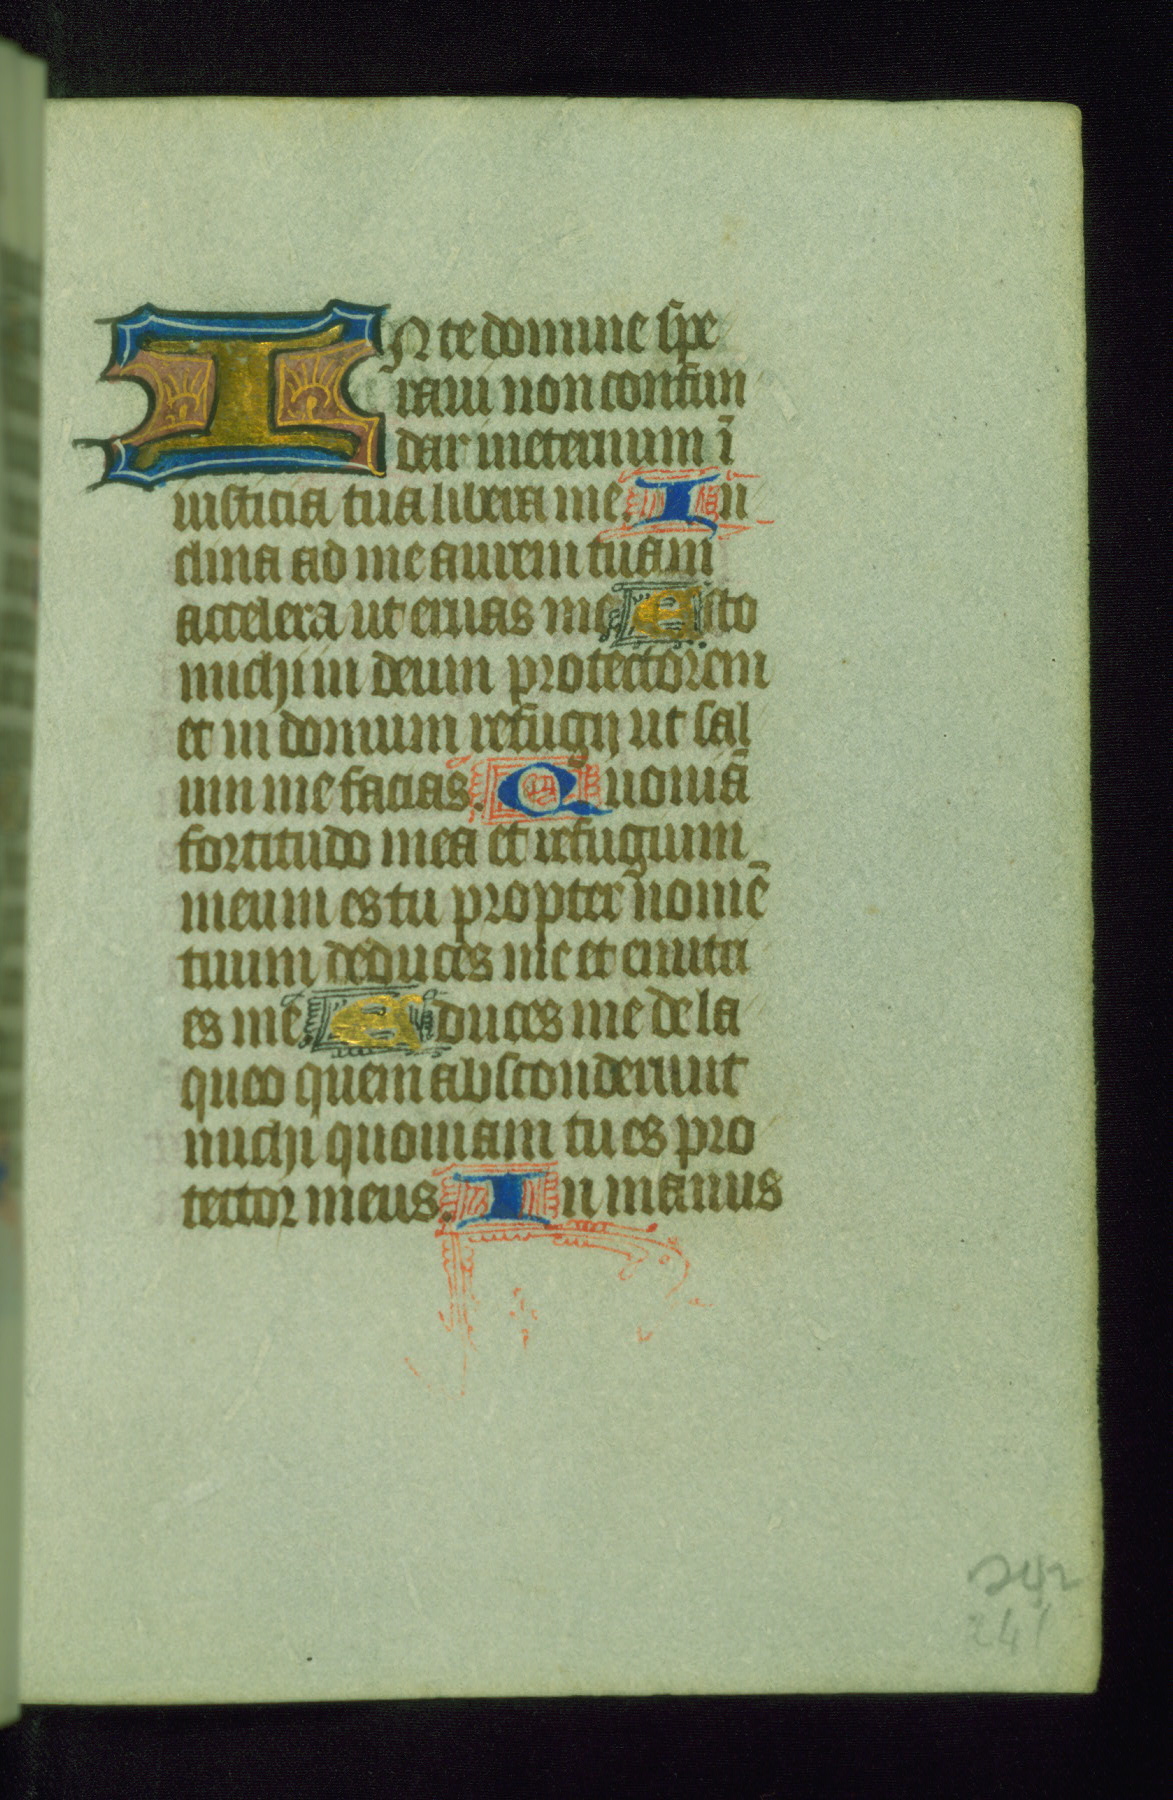 IN te domine spe
raui non confun
dar ineternum ī
iusticia tua libera me. In
clina ad me aurem tuam
accelera ut eruas me Esto
michi in deum protectorem
et in domum refugij ut sal
uum me facias. Quoniā
fortitudo mea et refugium
meum es tu propter nomē
tuum deduces me et enutri
es me. Educes me de la
queo quem absconderunt
michi quoniam tu es pro
tector meus. In manus
242
241